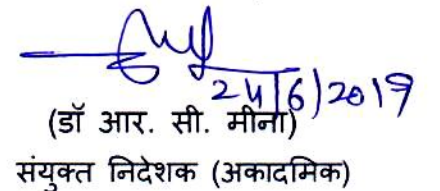 24/6/2019
(डॉ आर. सी. मीना)
संयुक्त निदेशक (अकादमिक)